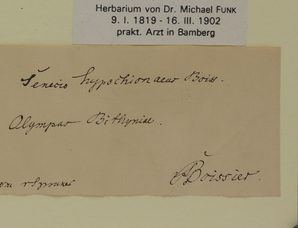 Herbarium von Dr. Michael FUNK
9. I. 1819 - 16. III. 1902
prakt. Arzt in Bamberg
Senecio hypochionaeus Boiss.
Olympus Bithyniae.
Boissier.